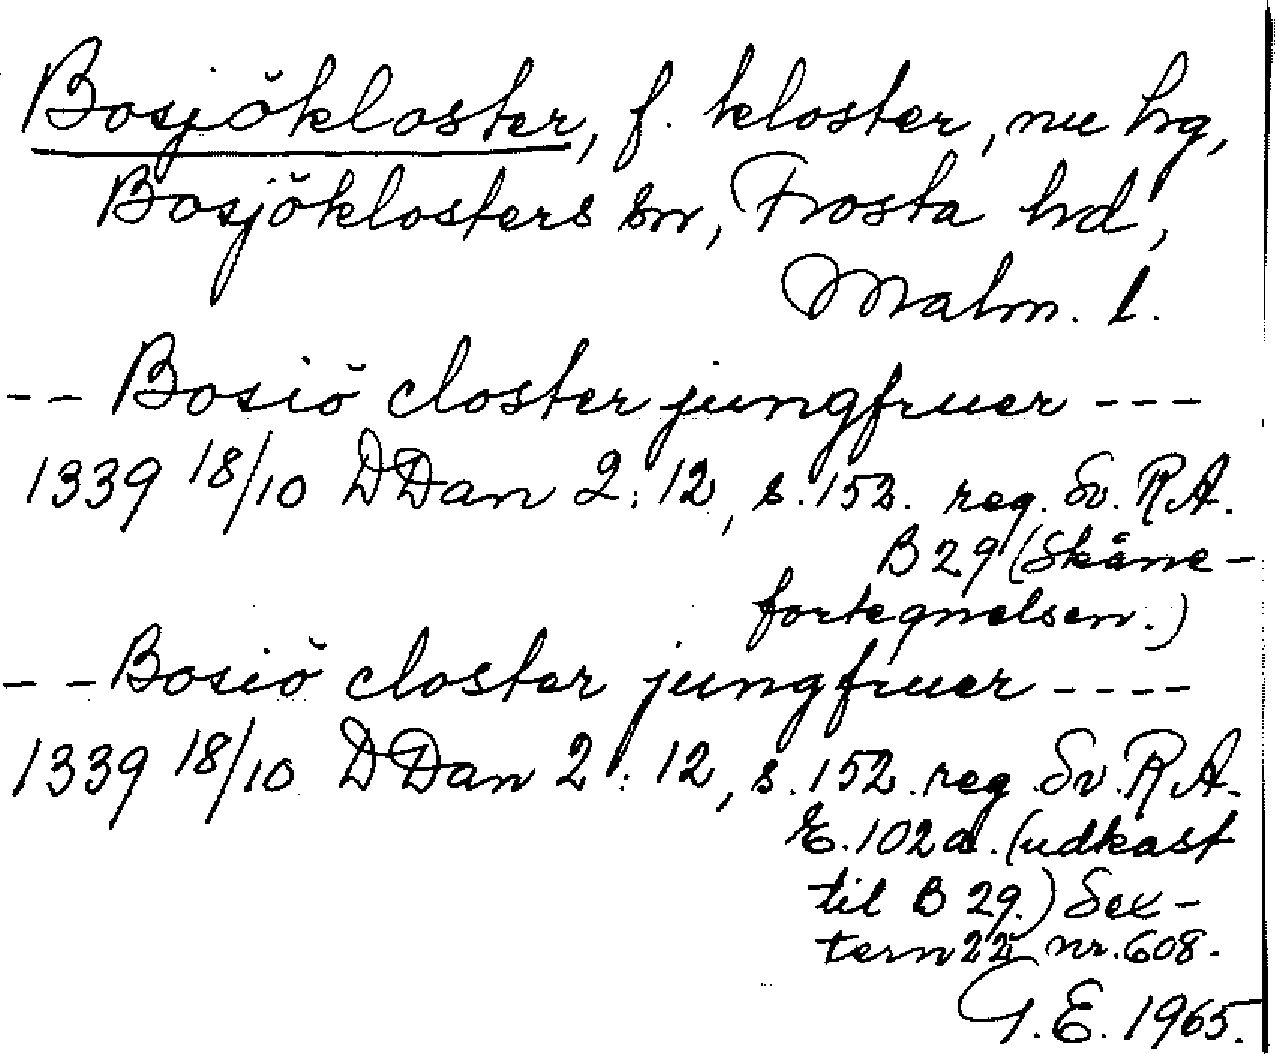 Bosjökloster, f. kloster, nu hg,
Bosjöklosters sn, Frosta hd,
Malm. l.
-- Bosiö closter jungfruer ---
1339 18/10 DDan 2:12, s. 152. reg. Sv. RA.
B 29 (Skåne-
fortegnelsen.)
-- Bosiö closter jungfruer ----
1339 18/10 DDan 2:12, s. 152. reg. Sv. RA.
E. 102a. (udkast
til B 29.) Sex-
tern 22 nr. 608.
G.E. 1965.